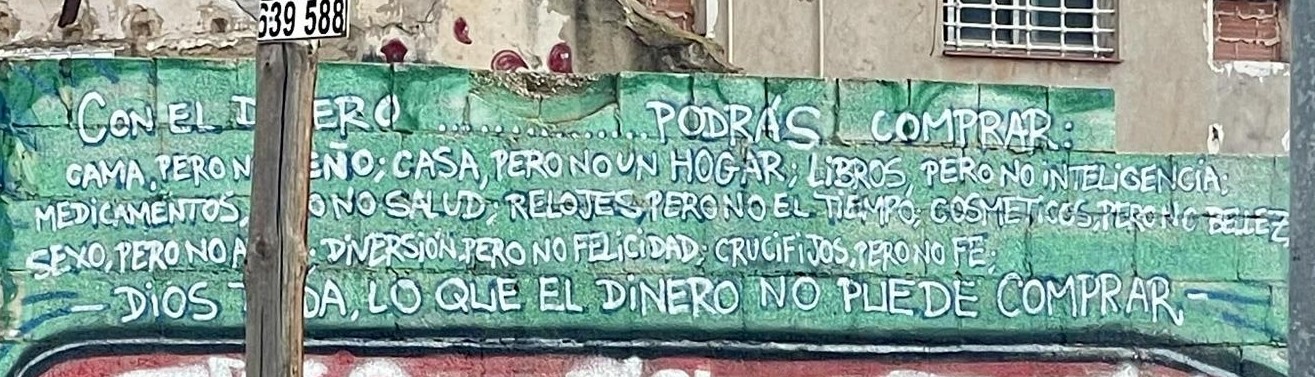 639 588
CON EL D ERO ................. PODRÁS COMPRAR:
CAMA, PERO N EÑO; CASA, PERO NO UN HOGAR; LIBROS, PERO NO INTELIGENCIA;
MEDICAMENTOS, O NO SALUD; RELOJES, PERO NO EL TIEMPO; COSMETICOS, PERO NO BELLEZ
SEXO, PERO NO A ; DIVERSIÓN, PERO NO FELICIDAD; CRUCIFIJOS, PERO NO FE;
— DIOS T DA, LO QUE EL DINERO NO PUEDE COMPRAR —